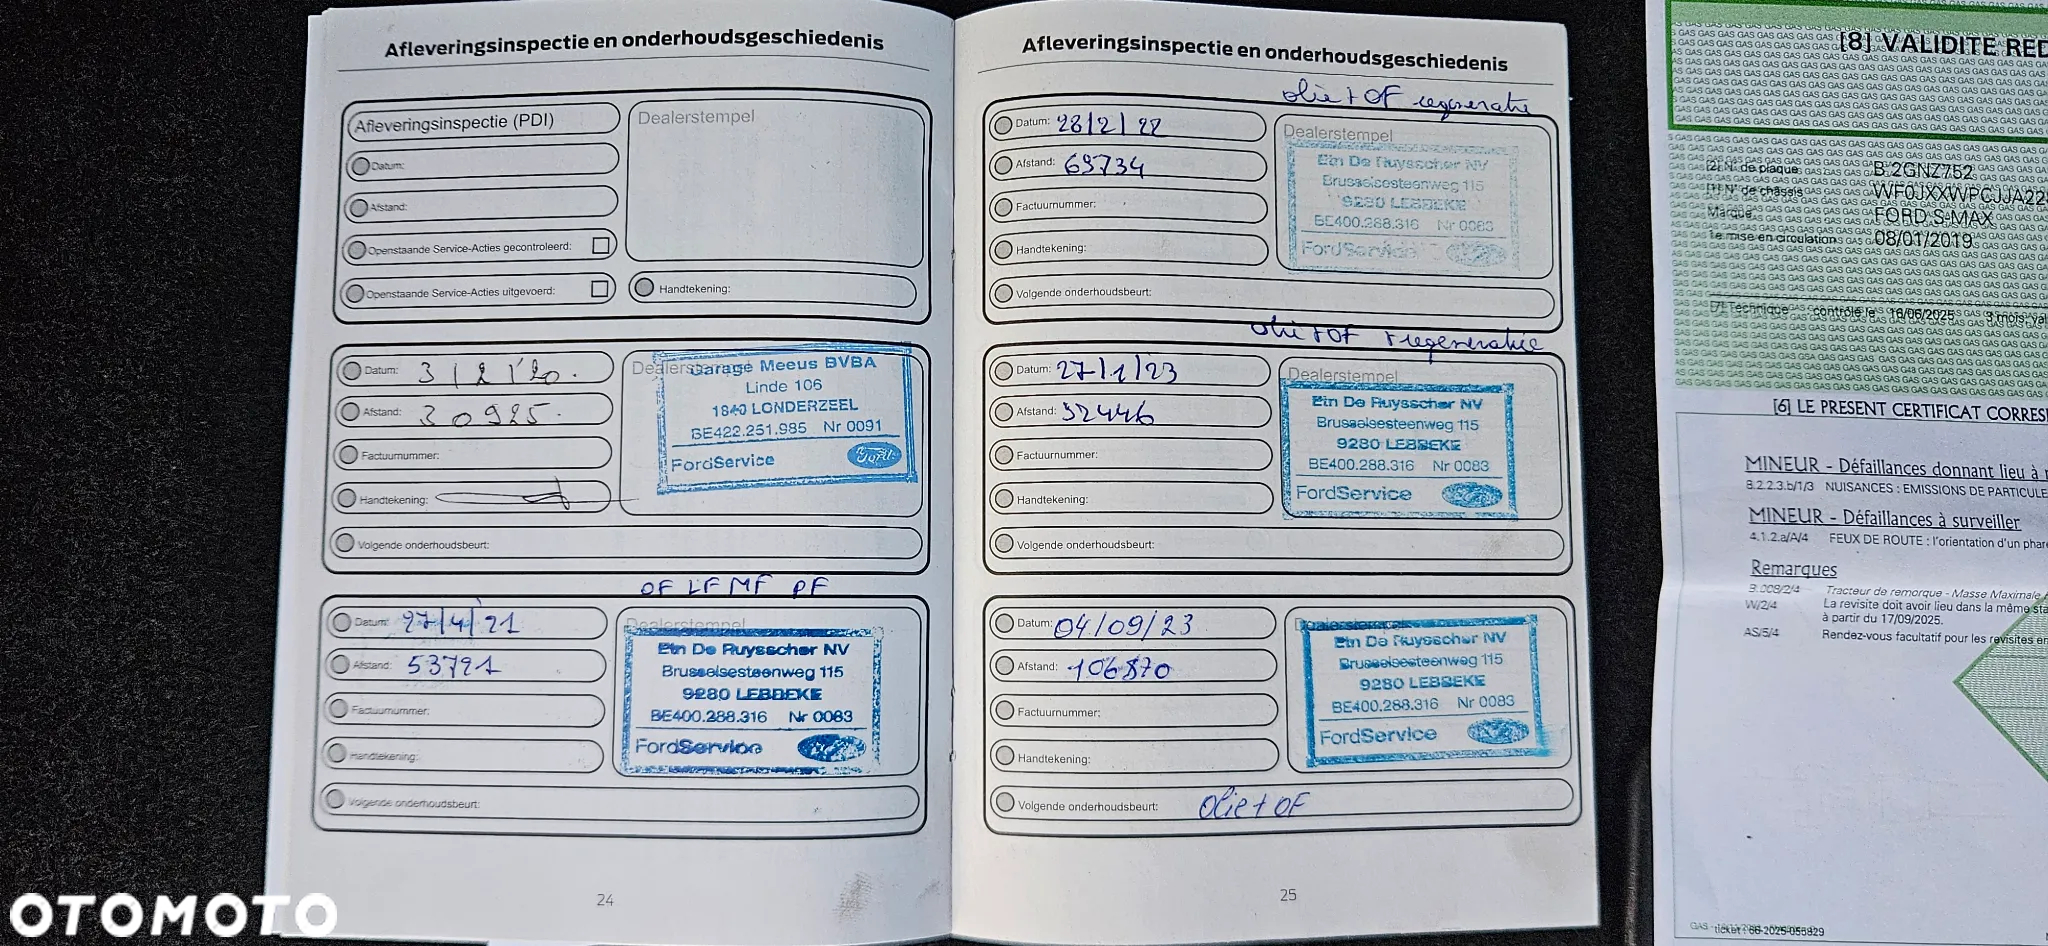 Afleveringsinspectie en onderhoudsgeschiedenis
Afleveringsinspectie (PDI)
Dealerstempel
Datum:
Afstand:
Openstaande Service-Acties gecontroleerd:
Openstaande Service-Acties uitgevoerd:
Handtekening:
Datum: 3/2/'20.
Afstand: 30925.
Factuurnummer:
Handtekening:
Volgende onderhoudsbeurt:
Dealerstempel
Garage Meeus BVBA
Linde 106
1840 LONDERZEEL
BE422.251.985 Nr 0091
FordService
Ford
OF LF MF PF
Datum: 27/4/21
Afstand: 53721
Factuurnummer:
Handtekening:
Volgende onderhoudsbeurt:
Dealerstempel
Etn De Ruysscher NV
Brusselsesteenweg 115
9280 LEBBEKE
BE400.288.316 Nr 0083
FordService
24
Afleveringsinspectie en onderhoudsgeschiedenis
olie + OF regeneratie
Datum: 28/2/22
Afstand: 69734
Factuurnummer:
Handtekening:
Volgende onderhoudsbeurt:
Dealerstempel
Etn De Ruysscher NV
Brusselsesteenweg 115
9280 LEBBEKE
BE400.288.316 Nr 0083
FordService
olie + OF + regeneratie
Datum: 27/1/23
Afstand: 92446
Factuurnummer:
Handtekening:
Volgende onderhoudsbeurt:
Dealerstempel
Etn De Ruysscher NV
Brusselsesteenweg 115
9280 LEBBEKE
BE400.288.316 Nr 0083
FordService
Datum: 04/09/23
Afstand: 106870
Factuurnummer:
Handtekening:
Volgende onderhoudsbeurt: Olie + OF
Dealerstempel
Etn De Ruysscher NV
Brusselsesteenweg 115
9280 LEBBEKE
BE400.288.316 Nr 0083
FordService
25
[8] VALIDITE RED
[2] N° de plaque B 2GNZ752
[1] N° de châssis WF0JXXWPCJJA22
Marque FORD S-MAX
1e mise en circulation 08/01/2019
[7] Technique contrôlé le 16/06/2025 3 mois
[6] LE PRESENT CERTIFICAT CORRES
MINEUR - Défaillances donnant lieu à
8.2.2.3.b/1/3 NUISANCES : EMISSIONS DE PARTICULE
MINEUR - Défaillances à surveiller
4.1.2.a/A/4 FEUX DE ROUTE : l'orientation d'un phare
Remarques
B.008/2/4 Tracteur de remorque - Masse Maximale
W/2/4 La revisite doit avoir lieu dans la même sta
à partir du 17/09/2025.
AS/5/4 Rendez-vous facultatif pour les revisites en
ticket : 66-2025-055829
OTOMOTO